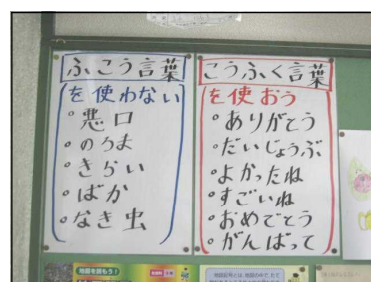 ふこう言葉
を使わない
。悪口
。のろま
。きらい
。ばか
。なき虫
こうふく言葉
を使おう
。ありがとう
。だいじょうぶ
。よかったね
。すごいね
。おめでとう
。がんばって
地図を読もう!